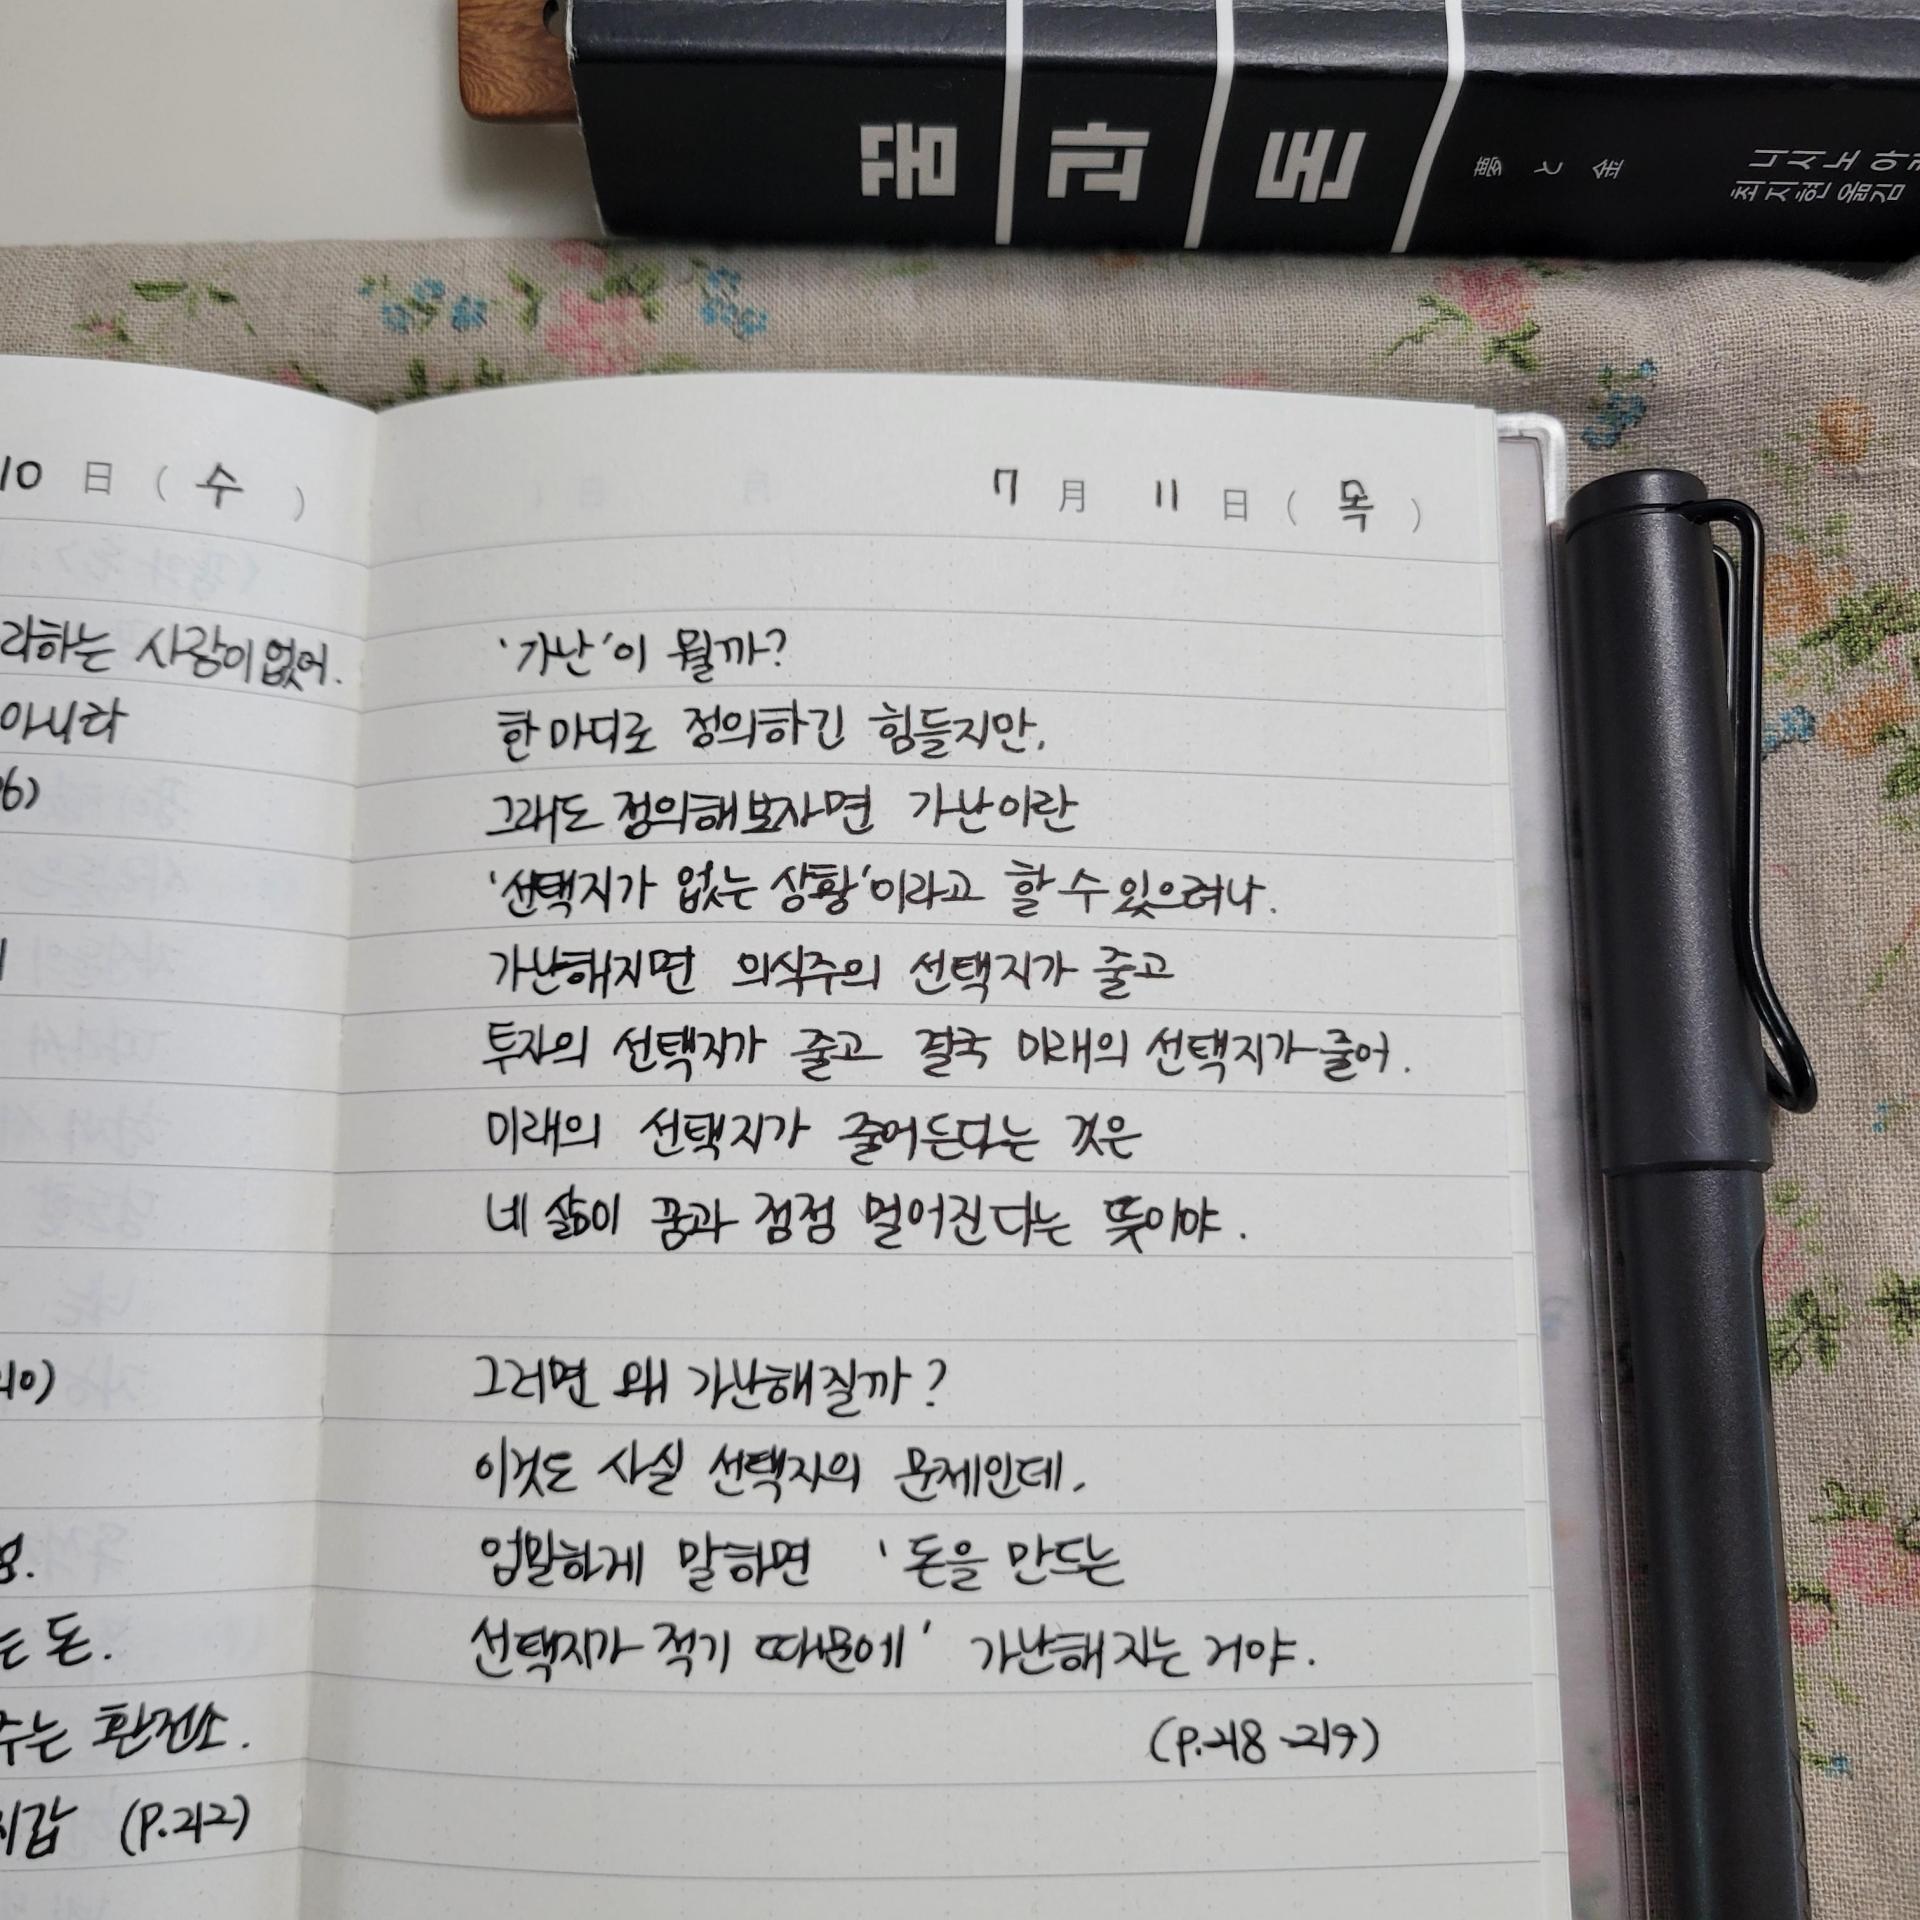 꿈과 돈
夢と金
니시노 아
최지현 옮김
10 日 ( 수 )
라하는 사람이 없어.
아니라
6)
10)
돈.
주는 환전소.
지갑 (P.212)
7 月 11 日 ( 목 )
'가난'이 뭘까?
한마디로 정의하긴 힘들지만,
그래도 정의해보자면 가난이란
'선택지가 없는 상황'이라고 할 수 있으려나.
가난해지면 의식주의 선택지가 줄고
투자의 선택지가 줄고 결국 미래의 선택지가 줄어.
미래의 선택지가 줄어든다는 것은
네 삶이 꿈과 점점 멀어진다는 뜻이야.
그러면 왜 가난해질까?
이것도 사실 선택지의 문제인데,
엄밀하게 말하면 '돈을 만드는
선택지가 적기 때문에' 가난해지는 거야.
(P.218-219)